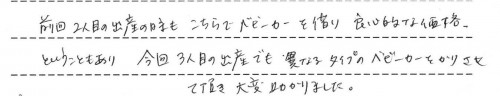 前回2人目の出産の時も こちらで ベビーカーを借り 良心的な価格
ということもあり 今回3人目の出産でも 異なるタイプのベビーカーをかりさせ
て頂き 大変助かりました。